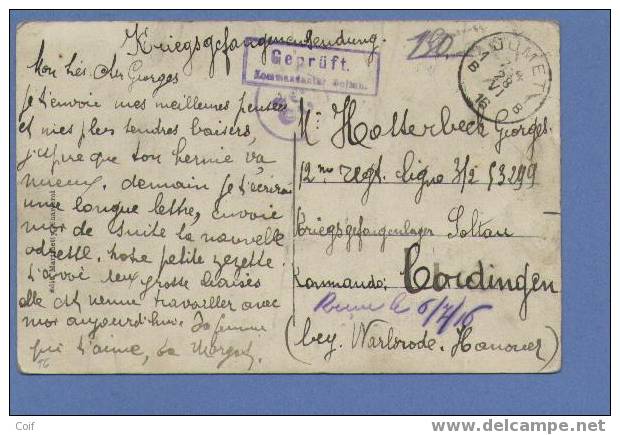 Kriegsgefangenen Sendung.
190.
Geprüft.
Kommandantur Soltau.
JUMET
28
VI
16
B B
Mon très cher Georges
Je t'envoie mes meilleures pensées
et mes plus tendres baisers,
j'espère que ton hernie va
mieux. demain je t'écrirai
une longue lettre, envoie
moi de suite la nouvelle
adresse. notre petite
t'avoi deux grosse baisers
elle est venue travailler avec
moi aujourd'hui. Ta femme
qui t'aime, ta
Mr Hotterbeck Georges.
12me regt. ligne 3/2 53299
Kriegsgefangenlager Soltau
Kommando: Cordingen
Reçue le 6/7/16
(bey. Walsrode. Hanover)
16
Coif
www.delcampe.net